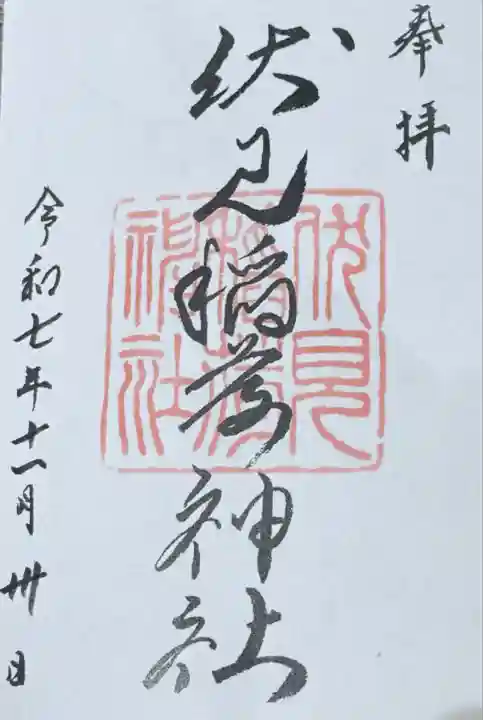 奉拝
伏見稲荷神社
伏見稲荷神社
令和七年十一月卅日